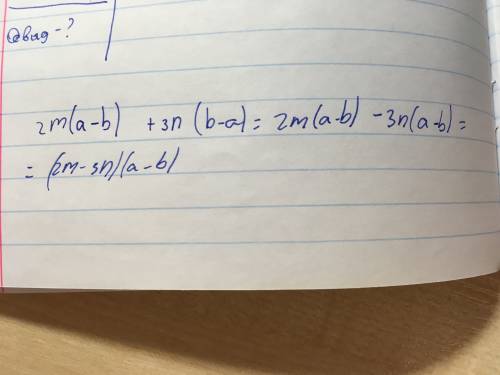 Qвыд-?
2m(a-b) +3n (b-a) = 2m(a-b) -3n(a-b) =
= (2m-3n)(a-b)